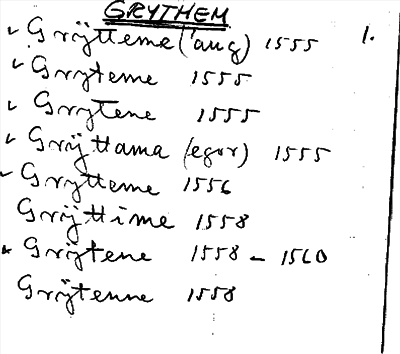 GRYTHEM
1.
Grÿtteme ('aug) 1555
Gryteme 1555
Grytene 1555
Grÿttama (egor) 1555
Grytteme 1556
Grÿttime 1558
Grÿtene 1558 - 1560
Grÿtenne 1558